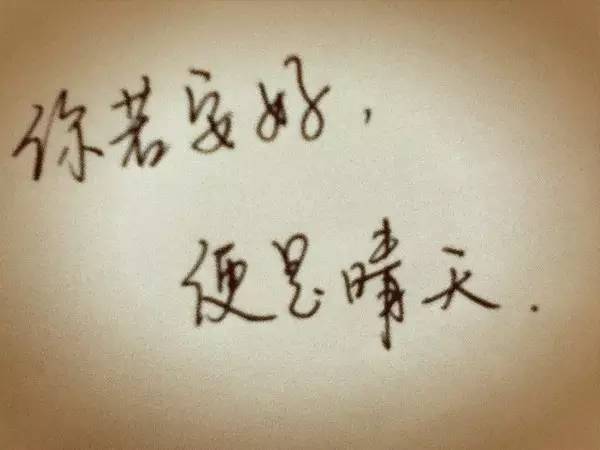 你若安好，
便是晴天.